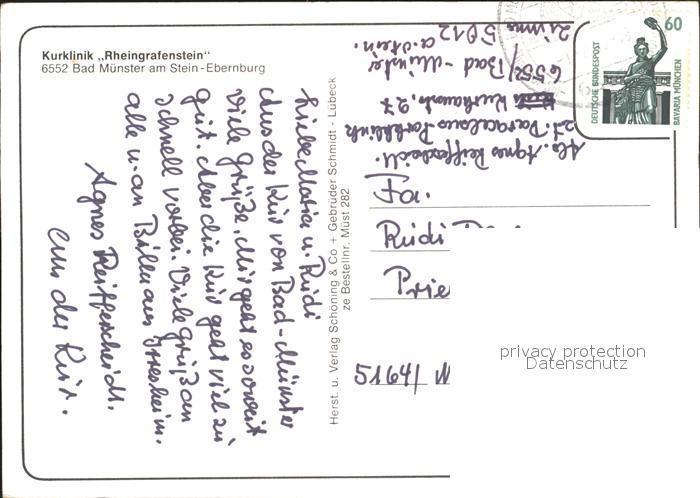 Kurklinik „Rheingrafenstein"
6552 Bad Münster am Stein-Ebernburg
Liebe Maria u. Rüdi
Aus der Kur von Bad-Münster
viele Grüße. Mir geht es soweit
gut. Aber die Kur geht viel zu
schnell vorbei. Viele Grüße an
alle u. an
Agnes Reifferscheidt.
aus der Kur.
Herst. u. Verlag Schöning & Co + Gebrüder Schmidt - Lübeck
ze Bestellnr. Müst 282
Abs. Agnes Reifferscheidt.
z.Z. Paracelsus Parkklinik
Kurhausstr. 27
6552 Bad-Münster
a. Stein.
Zimmer 5012
60
DEUTSCHE BUNDESPOST
BAVARIA MÜNCHEN
Fa.
Rüdi
Prie
5164/ N
privacy protection
Datenschutz